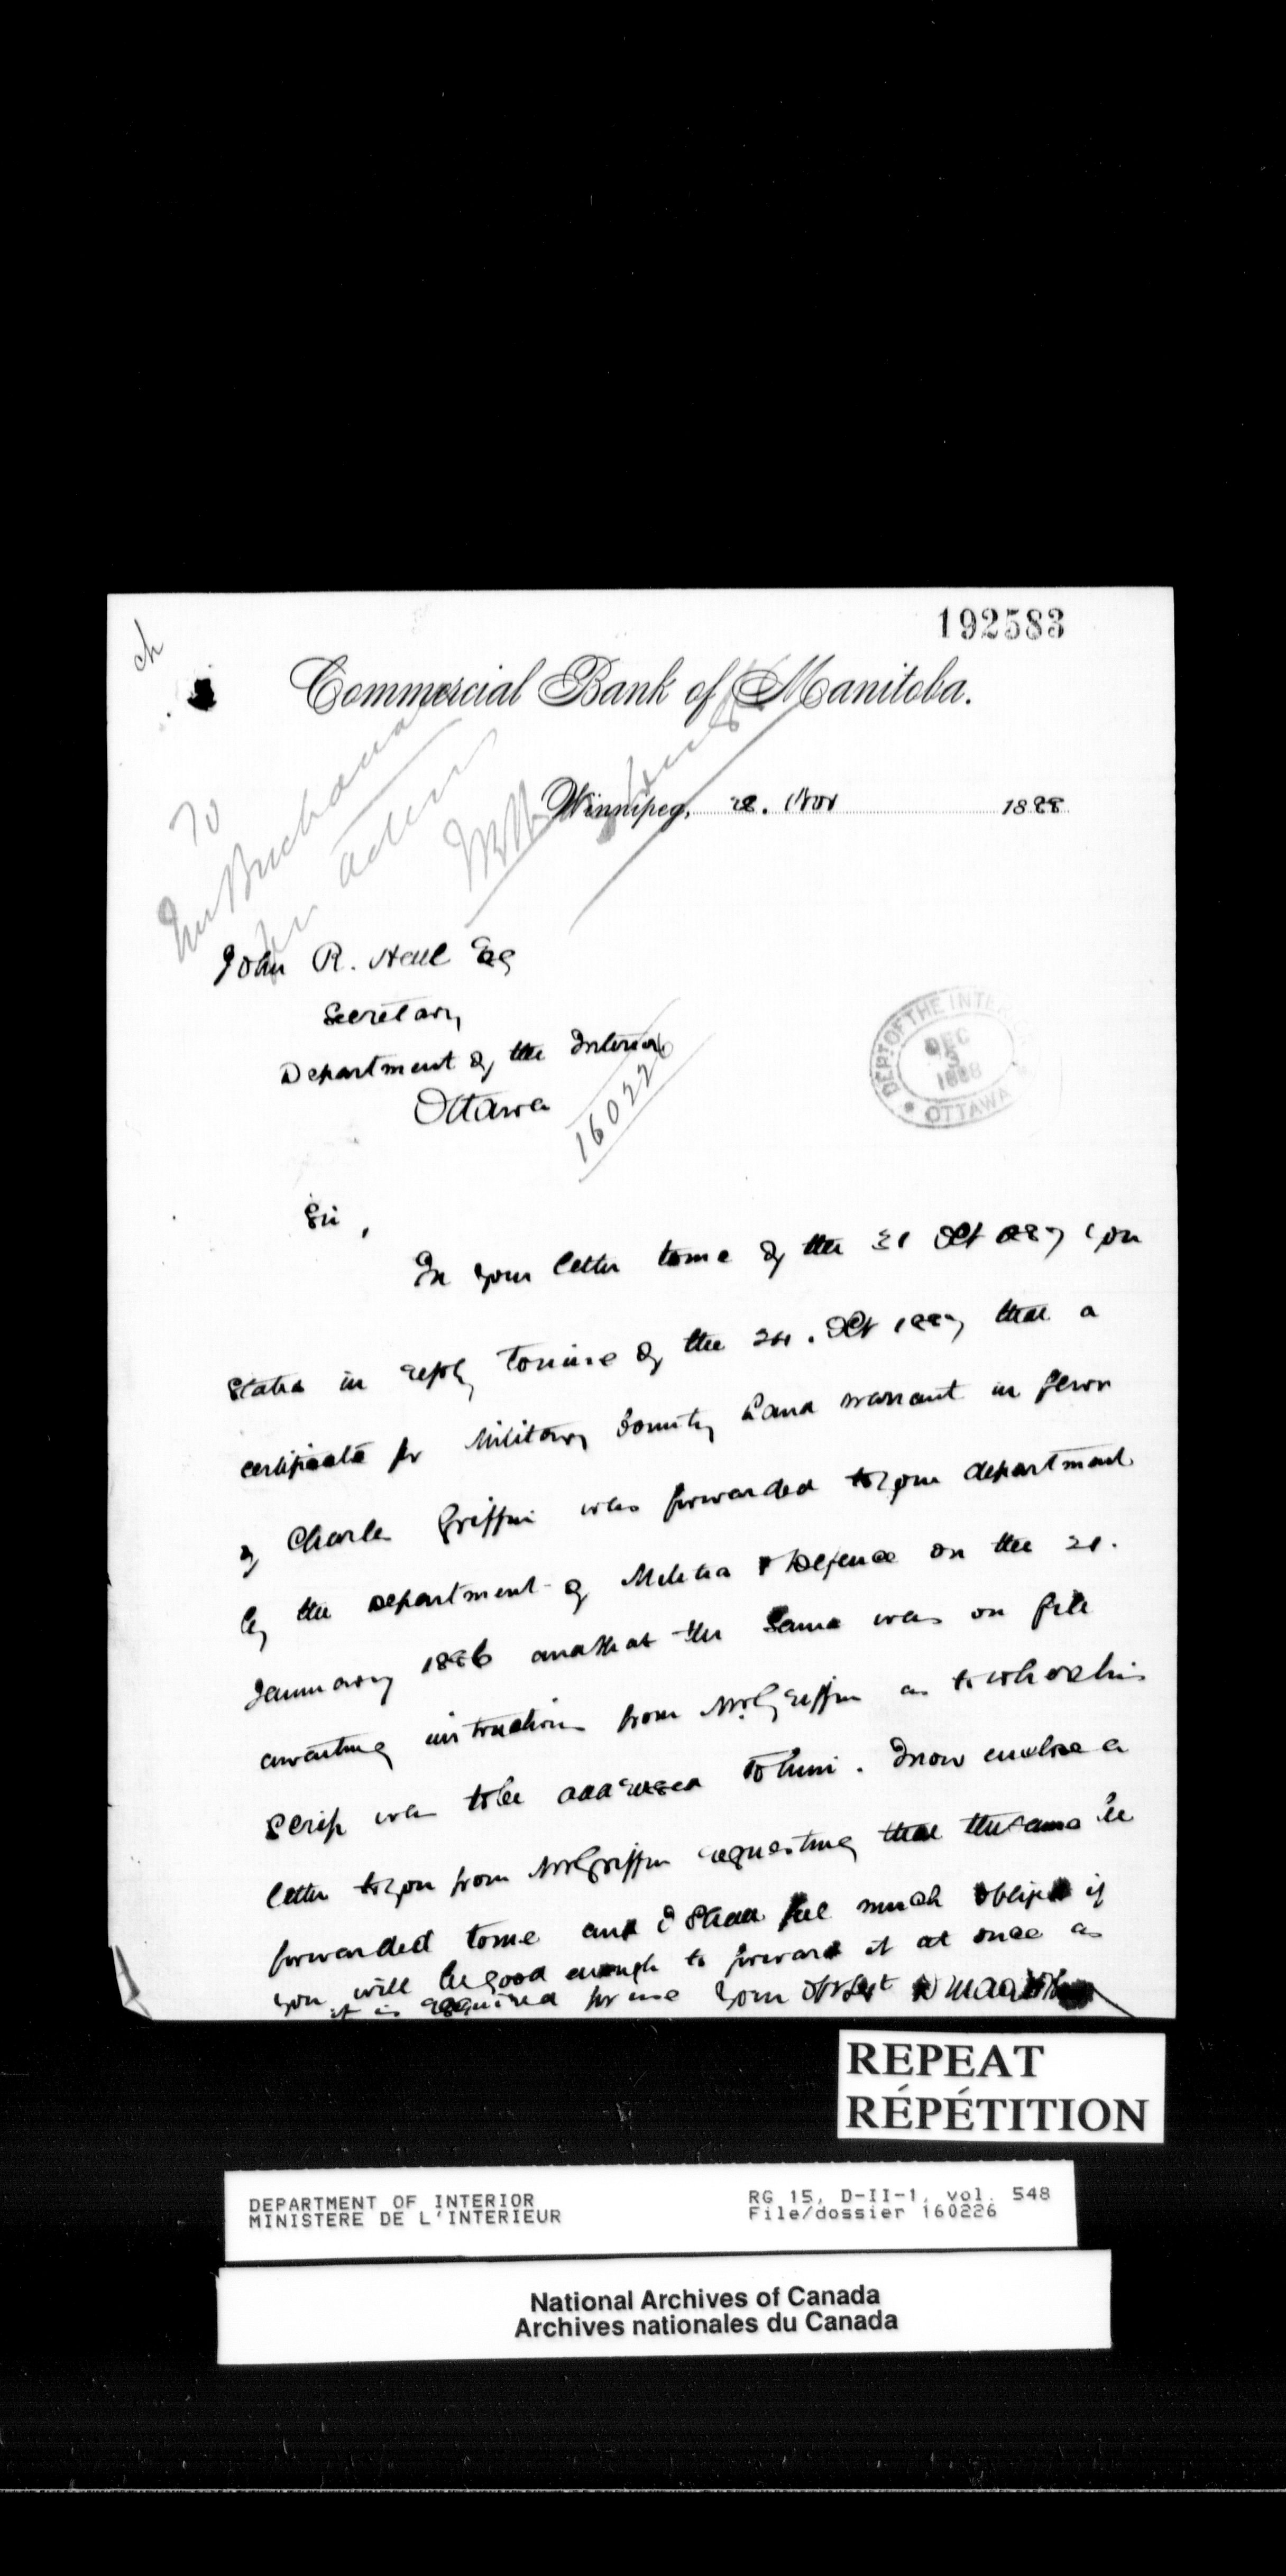 192583
ch
Commercial Bank of Manitoba.
To
Mr Buchanan
for action
Winnipeg, 28. Nov 1888
John R. Hall Esq
Secretary
Department of the Interior
Ottawa
160226
DEPT OF THE INTERIOR
DEC 3 1888
OTTAWA
Sir,
In your letter to me of the 31 Oct 1887 you
stated in reply to mine of the 24. Oct 1887 that a
certificate for Military bounty Land warrant in favor
of Charles Griffin was forwarded to your department
by the Department of Militia & Defence on the 21.
January 1886 and that the same was on file
awaiting instructions from Mr. Griffin as to where his
scrip was to be addressed to him. I now enclose a
letter to you from Mr Griffin requesting that the same be
forwarded to me and I shall feel much obliged if
you will be good enough to forward it at once as
it is required for use Your obt Svt
REPEAT
RÉPÉTITION
DEPARTMENT OF INTERIOR
MINISTERE DE L'INTERIEUR
RG 15, D-II-1, vol. 548
File/dossier 160226
National Archives of Canada
Archives nationales du Canada